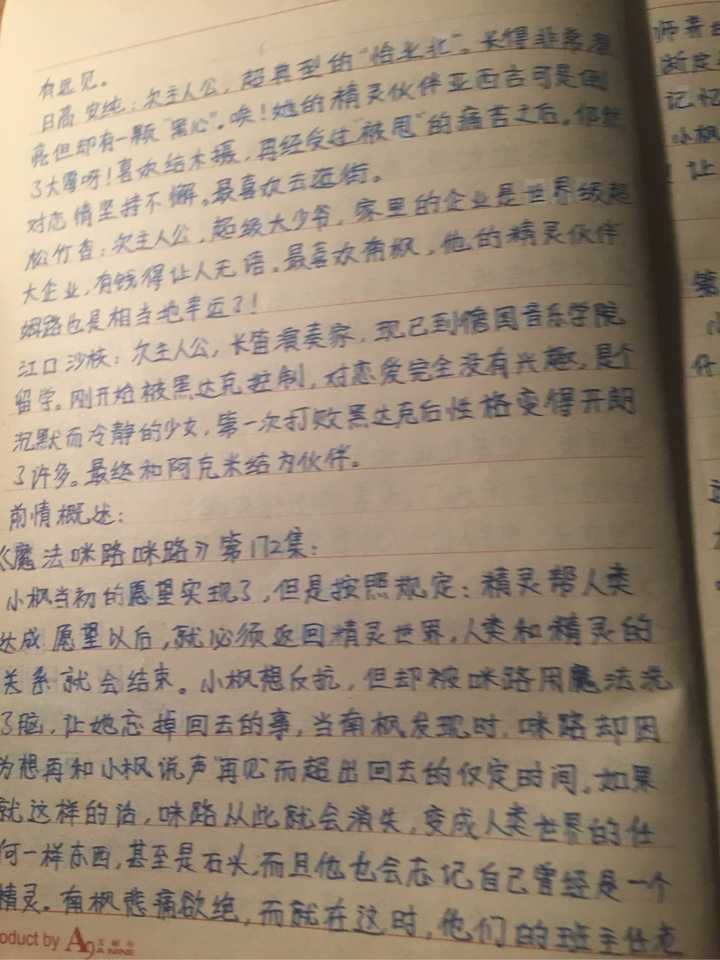 有远见。
日高 安纯：次主人公，超典型的“怡北北”。长得非常漂
亮但却有一颗“黑心”。唉！她的精灵伙伴亚西吉可是倒
了大霉呀！喜欢结木摄，再经受过“被甩”的痛苦之后，仍然
对恋情坚持不懈。最喜欢去逛街。
松竹杏：次主人公，超级大少爷，家里的企业是世界级超
大企业，有钱得让人无语。最喜欢南枫，他的精灵伙伴
姆路也是相当地幸运了！
江口 沙枝：次主人公，长笛演奏家，现已到德国音乐学院
留学。刚开始被黑达克控制，对恋爱完全没有兴趣，是个
沉默而冷静的少女，第一次打败黑达克后性格变得开朗
了许多。最终和阿克米结为伙伴。
前情概述：
《魔法咪路咪路》第172集：
小枫当初的愿望实现了，但是按照规定：精灵帮人类
达成愿望以后，就必须返回精灵世界，人类和精灵的
关系就会结束。小枫想反抗，但却被咪路用魔法洗
了脑，让她忘掉回去的事，当南枫发现时，咪路却因
为想再和小枫说声“再见”而超出回去的仪定时间，如果
就这样的话，咪路从此就会消失，变成人类世界的任
何一样东西，甚至是石头，而且他也会忘记自己曾经是一个
精灵。南枫悲痛欲绝，而就在这时，他们的班主任老
oduct by A9 A NINE
师
记忆
小枫
让
第